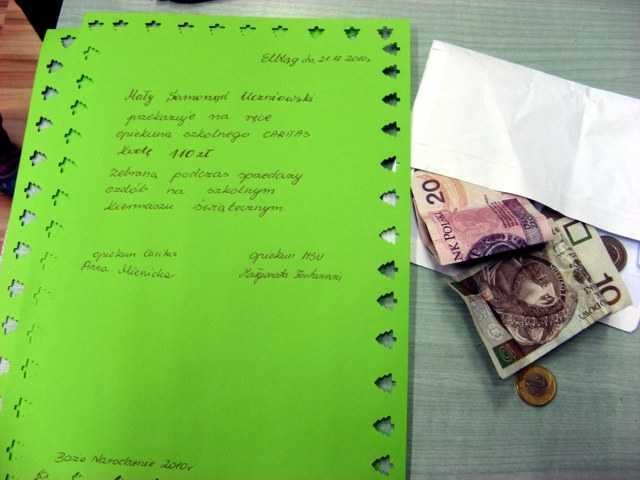 Elbląg dn. 21.12.2010r.
Mały Samorząd Uczniowski
przekazuje na ręce
opiekuna szkolnego CARITAS
kwotę 110 zł
zebraną podczas sprzedaży
ozdób na szkolnym
kiermaszu świątecznym
opiekun Caritas
Anna Miernicka
opiekun MSU
Małgorzata
Boże Narodzenie 2010r
20
NK POLSKI
10